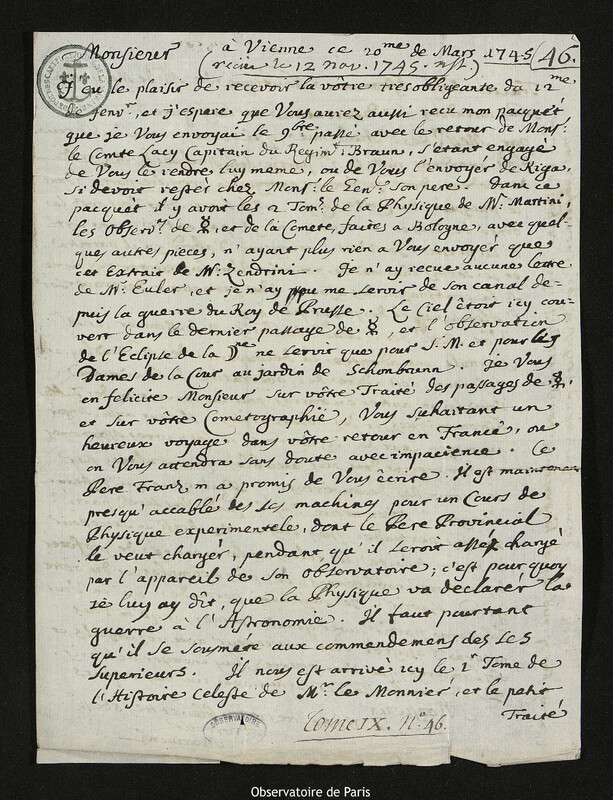 Monsieur à Vienne ce 20me de Mars 1745 46.
(recüe le 12 Nov. 1745. n.st.)
J'ay eu le plaisir de recevoir la vôtre tresobligeante du 12me
de Jenvr, et j'espere que Vous aurez aussi recu mon pacquèt
que je Vous envoyai le 9bre passé avec le retour de Monsr
le Comte Lacy Capitain du Regimt: Braun, s'etant engagé
de Vous le rendre luy meme, ou de Vous l'envoyèr de Riga,
si devoit restèr chez Monsr: le Genl: son pere. Dans ce
pacquèt il y avoit les 2 Tom: de la Physique de Mr. Martini,
les Observ: de ☿, et de la Comete, faites a Bologne, avec quel-
ques autres pieces, n'ayant plus rien a Vous envoyèr que
cet Extrait de Mr. Zendrini. Je n'ay recue aucune lettre
de Mr. Euler, et je n'ay pu me servir de son canal de-
puis la guerre du Roy de Prusse. Le Ciel étoit icy cou-
vert dans le dernier passage de ☿, et l'observation
de l'Eclipse de la ☽ne ne servit que pour S. M. et pour les
Dames de la Cour au jardin de Schönbrunn. Je Vous
en felicite Monsieur sur vôtre Traité des passages de ☿,
et sur vôtre Cometographie, Vous suhaitant un
heureux voyage dans vôtre retour en France, ou
on Vous attendra sans doute avec impacience. Le
Pere Franz m'a promis de Vous ècrire. Il est maintenant
presqu'accablé des ses machines pour un Cours de
Physique experimentele, dont le Pere Provincial
le veut chargèr, pendant qu'il seroit assez chargé
par l'appareil de son Observatoire; c'est pourquoy
je luy ay dît, que la Physique va declarèr la
guerre à l'Astronomie. Il faut pourtant
qu'il se soumére aux commendemens des ses
Superieurs. Il nous est arrivè icy le 1r Tome de
l'Histoire Celeste de Mr. le Monnier, et le petit
Traité
OBSERVATOIRE
Tome IX. No. 46.
Observatoire de Paris